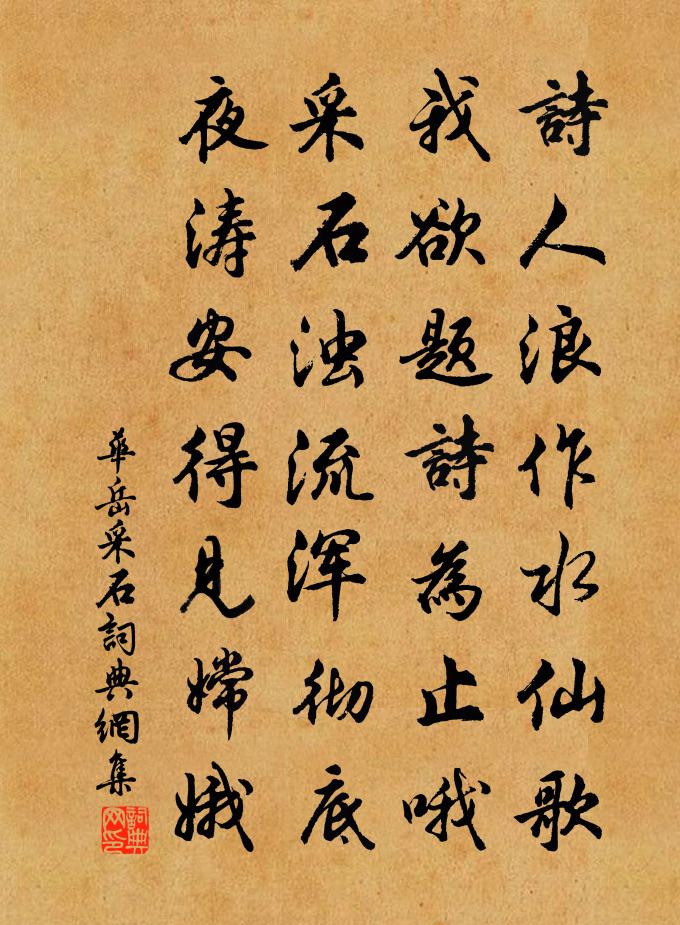 詩人浪作水仙歌
我欲题詩為止哦
采石浊流浑彻底
夜涛安得見嫦娥
華岳采石詞典網集
詞典
网印